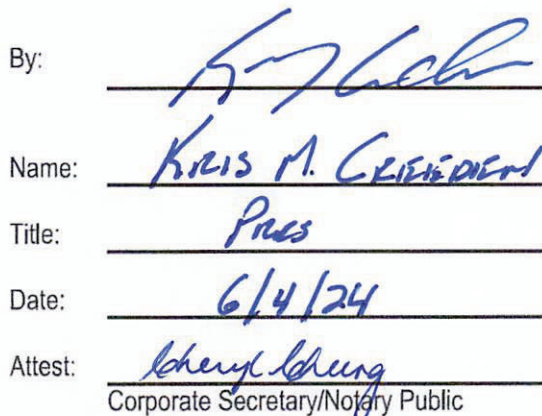 By:
Name: KRIS M. CREEDEN
Title: PRES
Date: 6/4/24
Attest: Cheryl Cheung
Corporate Secretary/Notary Public